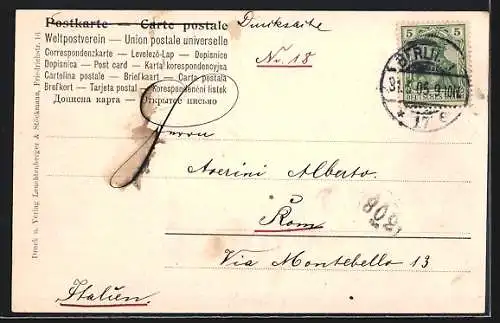 Postkarte — Carte postale
Drucksache
Weltpostverein — Union postale universelle
Correspondenzkarte — Levelező-Lap — Dopisnice
Dopisnica — Post card — Karta korespondencyjna
Cartolina postale — Briefkaart — Carta postala
Brefkort — Tarjeta postal — Korespondenční lístek
Дописна карта — Открытое письмо
Nr. 18
5 5
BERLIN
17
Herrn
Averini Alberto.
Rom
Via Montebello 13
Italien.
308
Druck u. Verlag Leuchtenberger & Stöckmann, Friedrichstr. 16